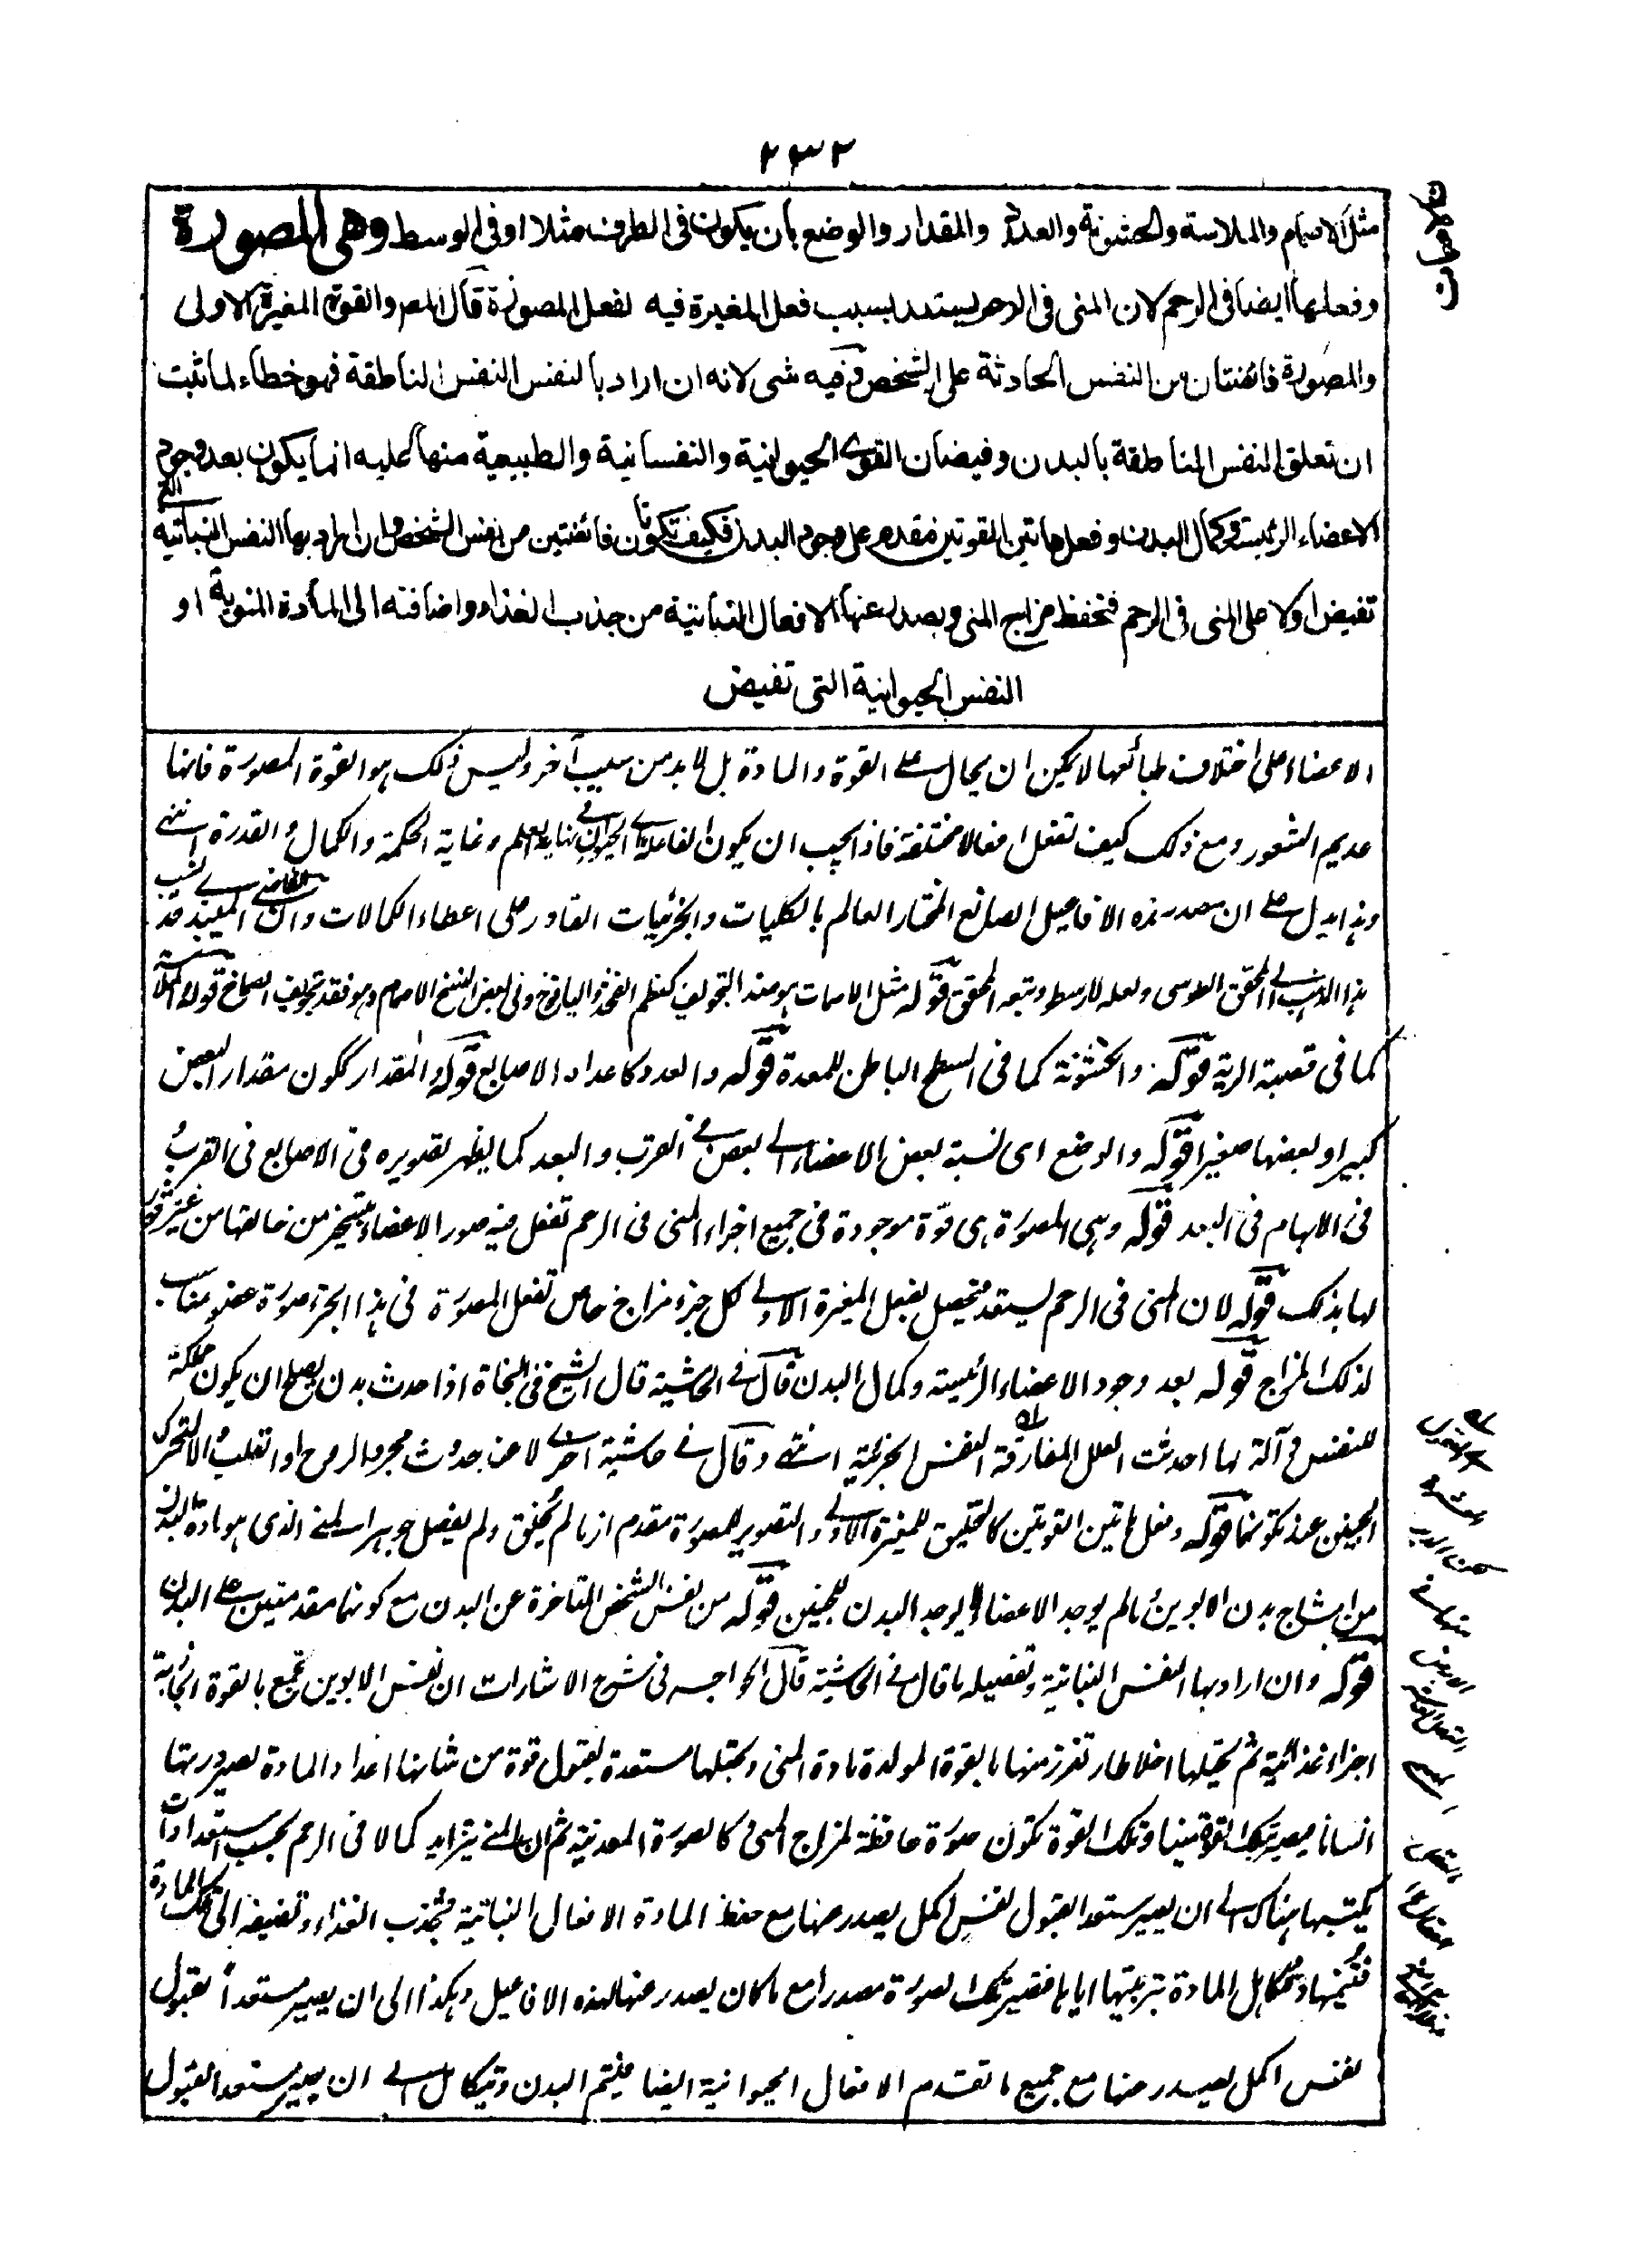 ٢٣٢
مثل الاصمام والملاسة والخشونة والعدد والمقدار والوضع بأن يكون فى الطرف مثلا او فى الوسط وهى المصورة
وفعلها ايضا فى الرحم لان المنى فى الرحم يستعد بسبب فعل المغيرة فيه لفعل المصورة قال المص والقوة المغيرة الاولى
والمصورة فائضتان من النفس الحادثة على الشخص وفيه شى لانه ان اراد بالنفس النفس الناطقة فهو خطاء لما ثبت
ان تعلق النفس الناطقة بالبدن وفيضان القوى الحيوانية والنفسانية والطبيعية منها عليه انما يكون بعد وجود
الاعضاء الرئيسة وكمال البدن وفعل هاتين القوتين مقدم على وجود البدن فكيف تكونان فائضتين من نفس الشخص وان اراد بها النفس النباتية التى
تفيض اولا على المنى فى الرحم فتحفظ مزاج المنى ويصدر عنها الافعال النباتية من جذب الغذاء واضافته الى المادة المنوية او
النفس الحيوانية التى تفيض
الاعضاء على اختلاف طبائعها لا يمكن ان يحال على القوة والمادة بل لابد من سبب آخر وليس ذلك هو القوة المصورة فانها
عديم الشعور ومع ذلك كيف تفعل افعالا مختلفة فاذا يجب ان يكون الفاعل لابدان الحيوان فى نهاية العلم وغاية الحكمة والكمال والقدرة انتهى
وهذا يدل على ان مصدر هذه الافاعيل الصانع المختار العالم بالكليات والجزئيات القادر على اعطاء الكمالات وان الفاضل الميبذى قد نسب
هذا المذهب الى المحقق الطوسى ولعله لارسطو وتبعه المحقق قوله مثل الاصمات هو ضد التجويف كعظم الفخذ واليافوخ وفى بعض النسخ الاصمام وهو فقد تجويف الصماخ قوله والملاسة
كما فى قصبة الرية قوله والخشونة كما فى السطح الباطن للمعدة قوله والعدد كاعداد الاصابع قوله والمقدار ككون مقدار البعض
كبيرا وبعضها صغيرا قوله والوضع اى نسبة بعض الاعضاء الى بعض فى القرب والبعد كما يظهر تصويره فى الاصابع فى القرب
فى الابهام فى البعد قوله وهى المصورة هى قوة موجودة فى جميع اجزاء المنى فى الرحم تفعل فيه صور الاعضاء بتسخير من خالقها من غير شعور
لها بذلك قوله لان المنى فى الرحم يستعد فتحصل بفعل المغيرة الاولى لكل جزء مزاج خاص تفعل المصورة فى هذا الجزء صورة عضو مناسب
لذلك المزاج قوله بعد وجود الاعضاء الرئيسة وكمال البدن قال فى الحاشية قال الشيخ فى النجاة اذا حدث بدن يصلح ان يكون مملكة
للنفس وآلة لها احدثت العلل المفارقة النفس الجزئية انتهى وقال فى حاشية اخرى لا عند حدوث مجرد الروح او القلب والا لتحرك
الجنين عند تكونها قوله وفعل هاتين القوتين كالتخليق للمغيرة الاولى والتصوير للمصورة مقدم اذ ما لم يخلق ولم يفصل جوهر المنى الذى هو مادة البدن
من امشاج بدن الابوين ما لم يوجد الاعضاء لا يوجد البدن للجنين قوله من نفس الشخص المتاخرة عن البدن مع كونهما مقدمتين على البدن
قوله وان اراد بها النفس النباتية وتفصيله ما قال فى الحاشية قال الخواجه فى شرح الاشارات ان نفس الابوين تجمع بالقوة الجاذبة
اجزاء غذائية ثم تجعلها اخلاطا وتفرز منها بالقوة المولدة مادة المنى وتجعلها مستعدة لقبول قوة من شانها اعداد المادة لصيرورتها
انسانا فيصير بتلك القوة منيا وتلك القوة تكون صورة حافظة لمزاج المنى كالصورة المعدنية ثم ان المنى يتزايد كمالا فى الرحم بحسب استعدادات
يكتسبها هناك الى ان يصير مستعدا لقبول نفس اكمل يصدر عنها مع حفظ المادة الافعال النباتية فتجذب الغذاء وتضيفه الى تلك المادة
فتنميها وتتكامل المادة بتربيتها اياها فتصير تلك الصورة مصدرا مع ما كان يصدر عنها لهذه الافاعيل وهكذا الى ان يصير مستعدا لقبول
نفس اكمل يصدر عنها مع جميع ما تقدم الافعال الحيوانية ايضا فيتم البدن ويتكامل الى ان يصير مستعدا لقبول